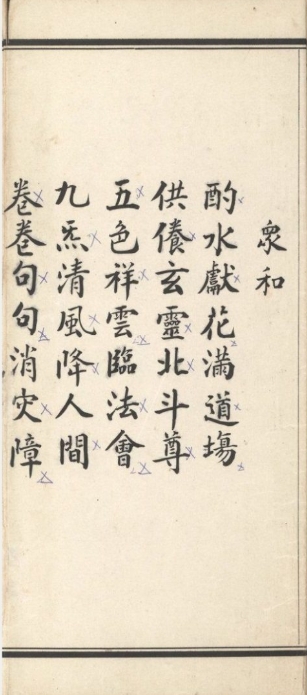 衆和
酌水獻花滿道塲
供養玄靈北斗尊
五色祥雲臨法會
九炁清風降人間
卷卷句句消灾障